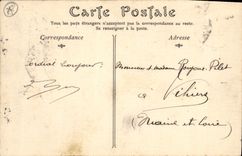 Carte Postale
Tous les pays étrangers n'acceptent pas la correspondance au recto.
Se renseigner à la poste.
Correspondance
Adresse
Cordial bonjour
Monsieur et madame
à
Vihiers
(Maine et Loire)